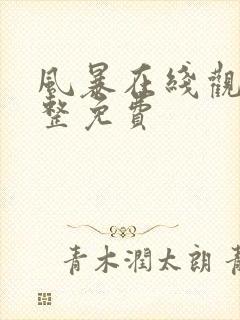 風暴在綫觀
整免費
青木潤太朗 青